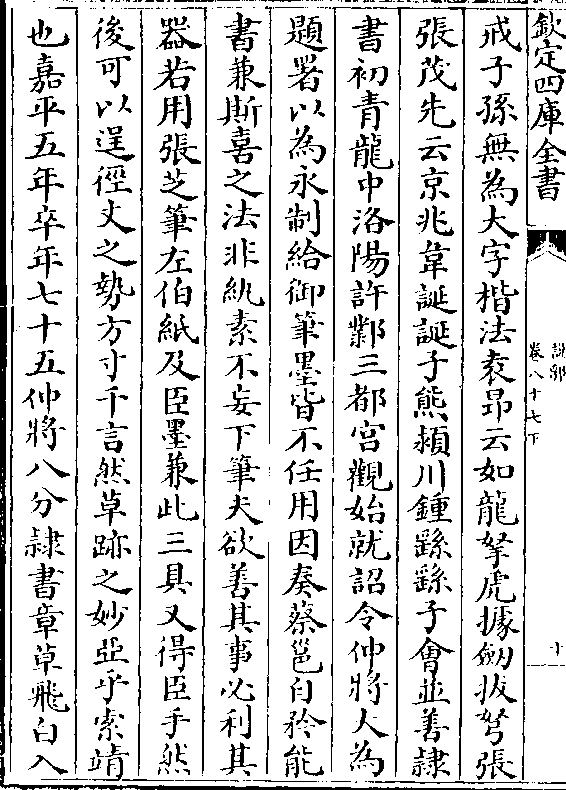 欽定四庫全書
說郛
卷八十七下
十
戒子孫無為大字楷法袁昻云如龍拏虎據劒拔弩張
張茂先云京兆韋誕誕子熊潁川鍾繇繇子會並善隸
書初青龍中洛陽許鄴三都宫觀始就詔令仲將大為
題署以為永制給御筆墨皆不任用因奏蔡邕自矜能
書兼斯喜之法非紈素不妄下筆夫欲善其事必利其
器若用張芝筆左伯紙及臣墨兼此三具又得臣手然
後可以逞徑丈之勢方寸千言然草跡之妙亞乎索靖
也嘉平五年卒年七十五仲將八分隸書章草飛白入